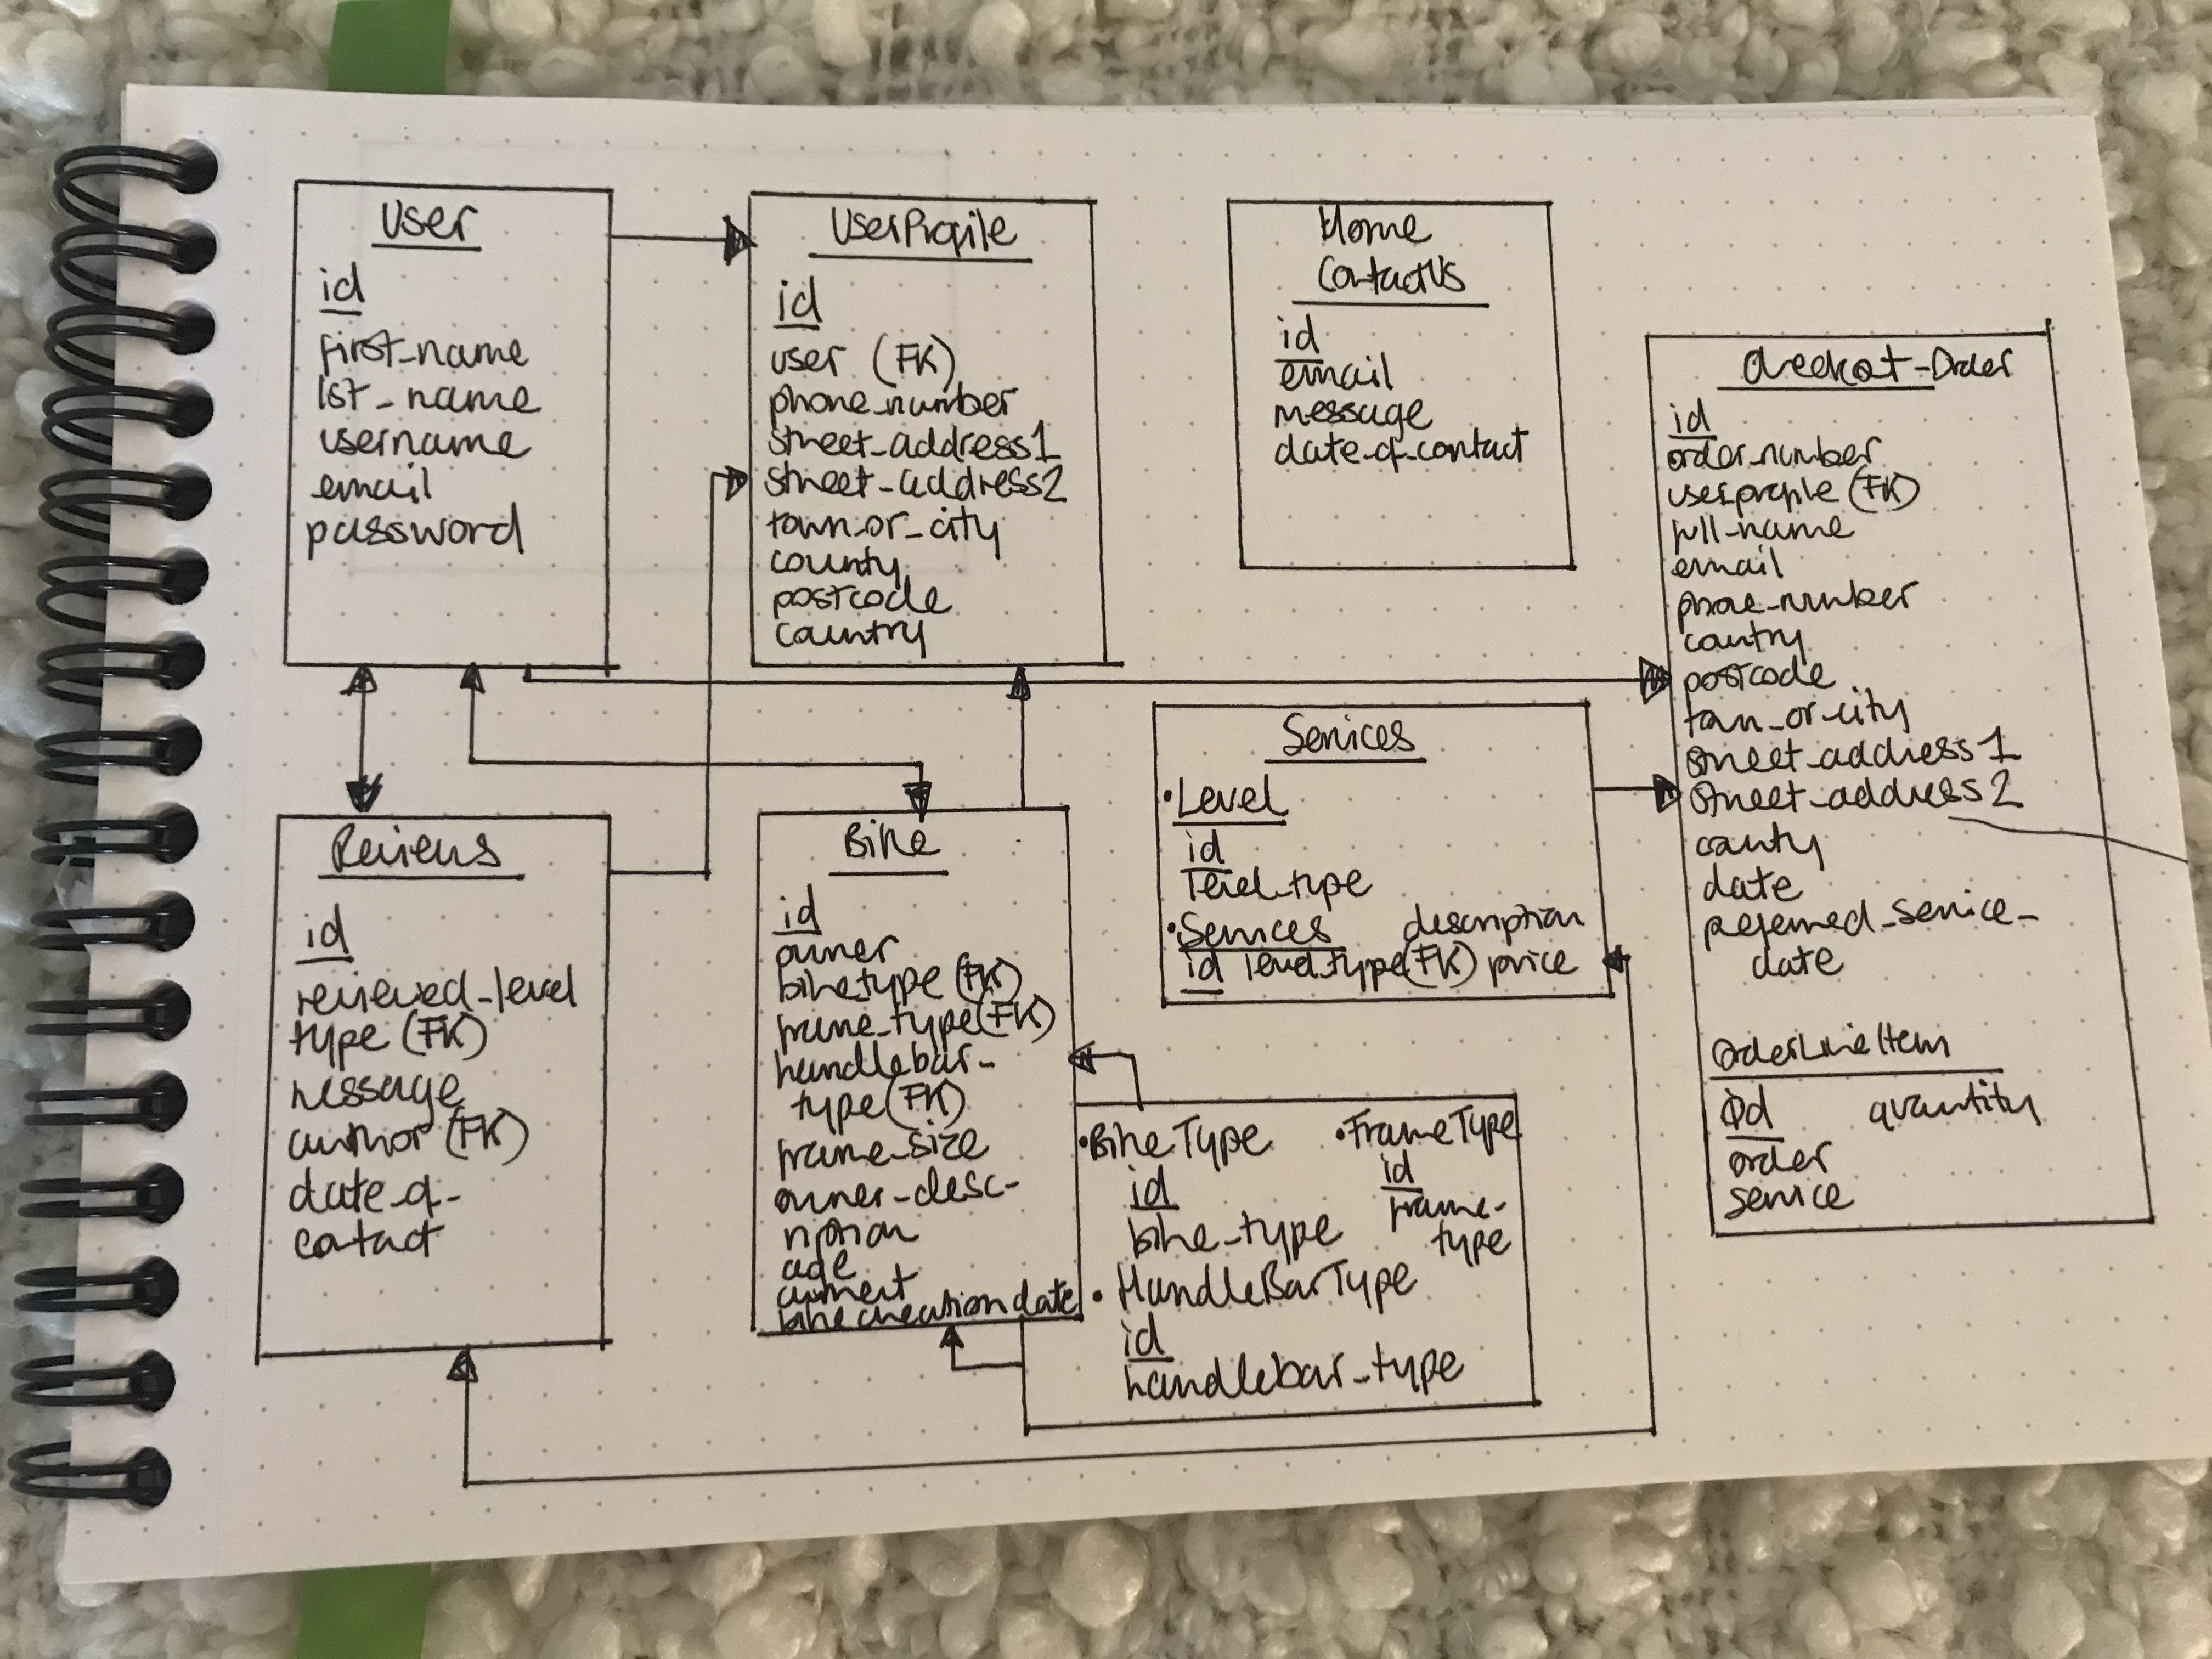 User
id
first-name
lst-name
username
email
password
UserProfile
id
user (FK)
phone-number
street-address1
street-address2
town-or-city
county
postcode
country
Home
ContactUs
id
email
message
date-of-contact
Checkout-Order
id
order-number
userprofile (FK)
full-name
email
phone-number
country
postcode
town-or-city
street-address1
street-address2
county
date
preferred-service-
date
OrderLineItem
id quantity
order
service
Reviews
id
reviewed-level
type (FK)
message
author (FK)
date-of-
contact
Bike
id
owner
biketype (FK)
frame-type (FK)
handlebar-
type (FK)
frame-size
owner-desc-
age
bikecreationdate
Services
•Level
id
level-type
•Services description
id level-type (FK) price
•BikeType •FrameType
id id
bike-type frame-
type
•HandleBarType
id
handlebar-type